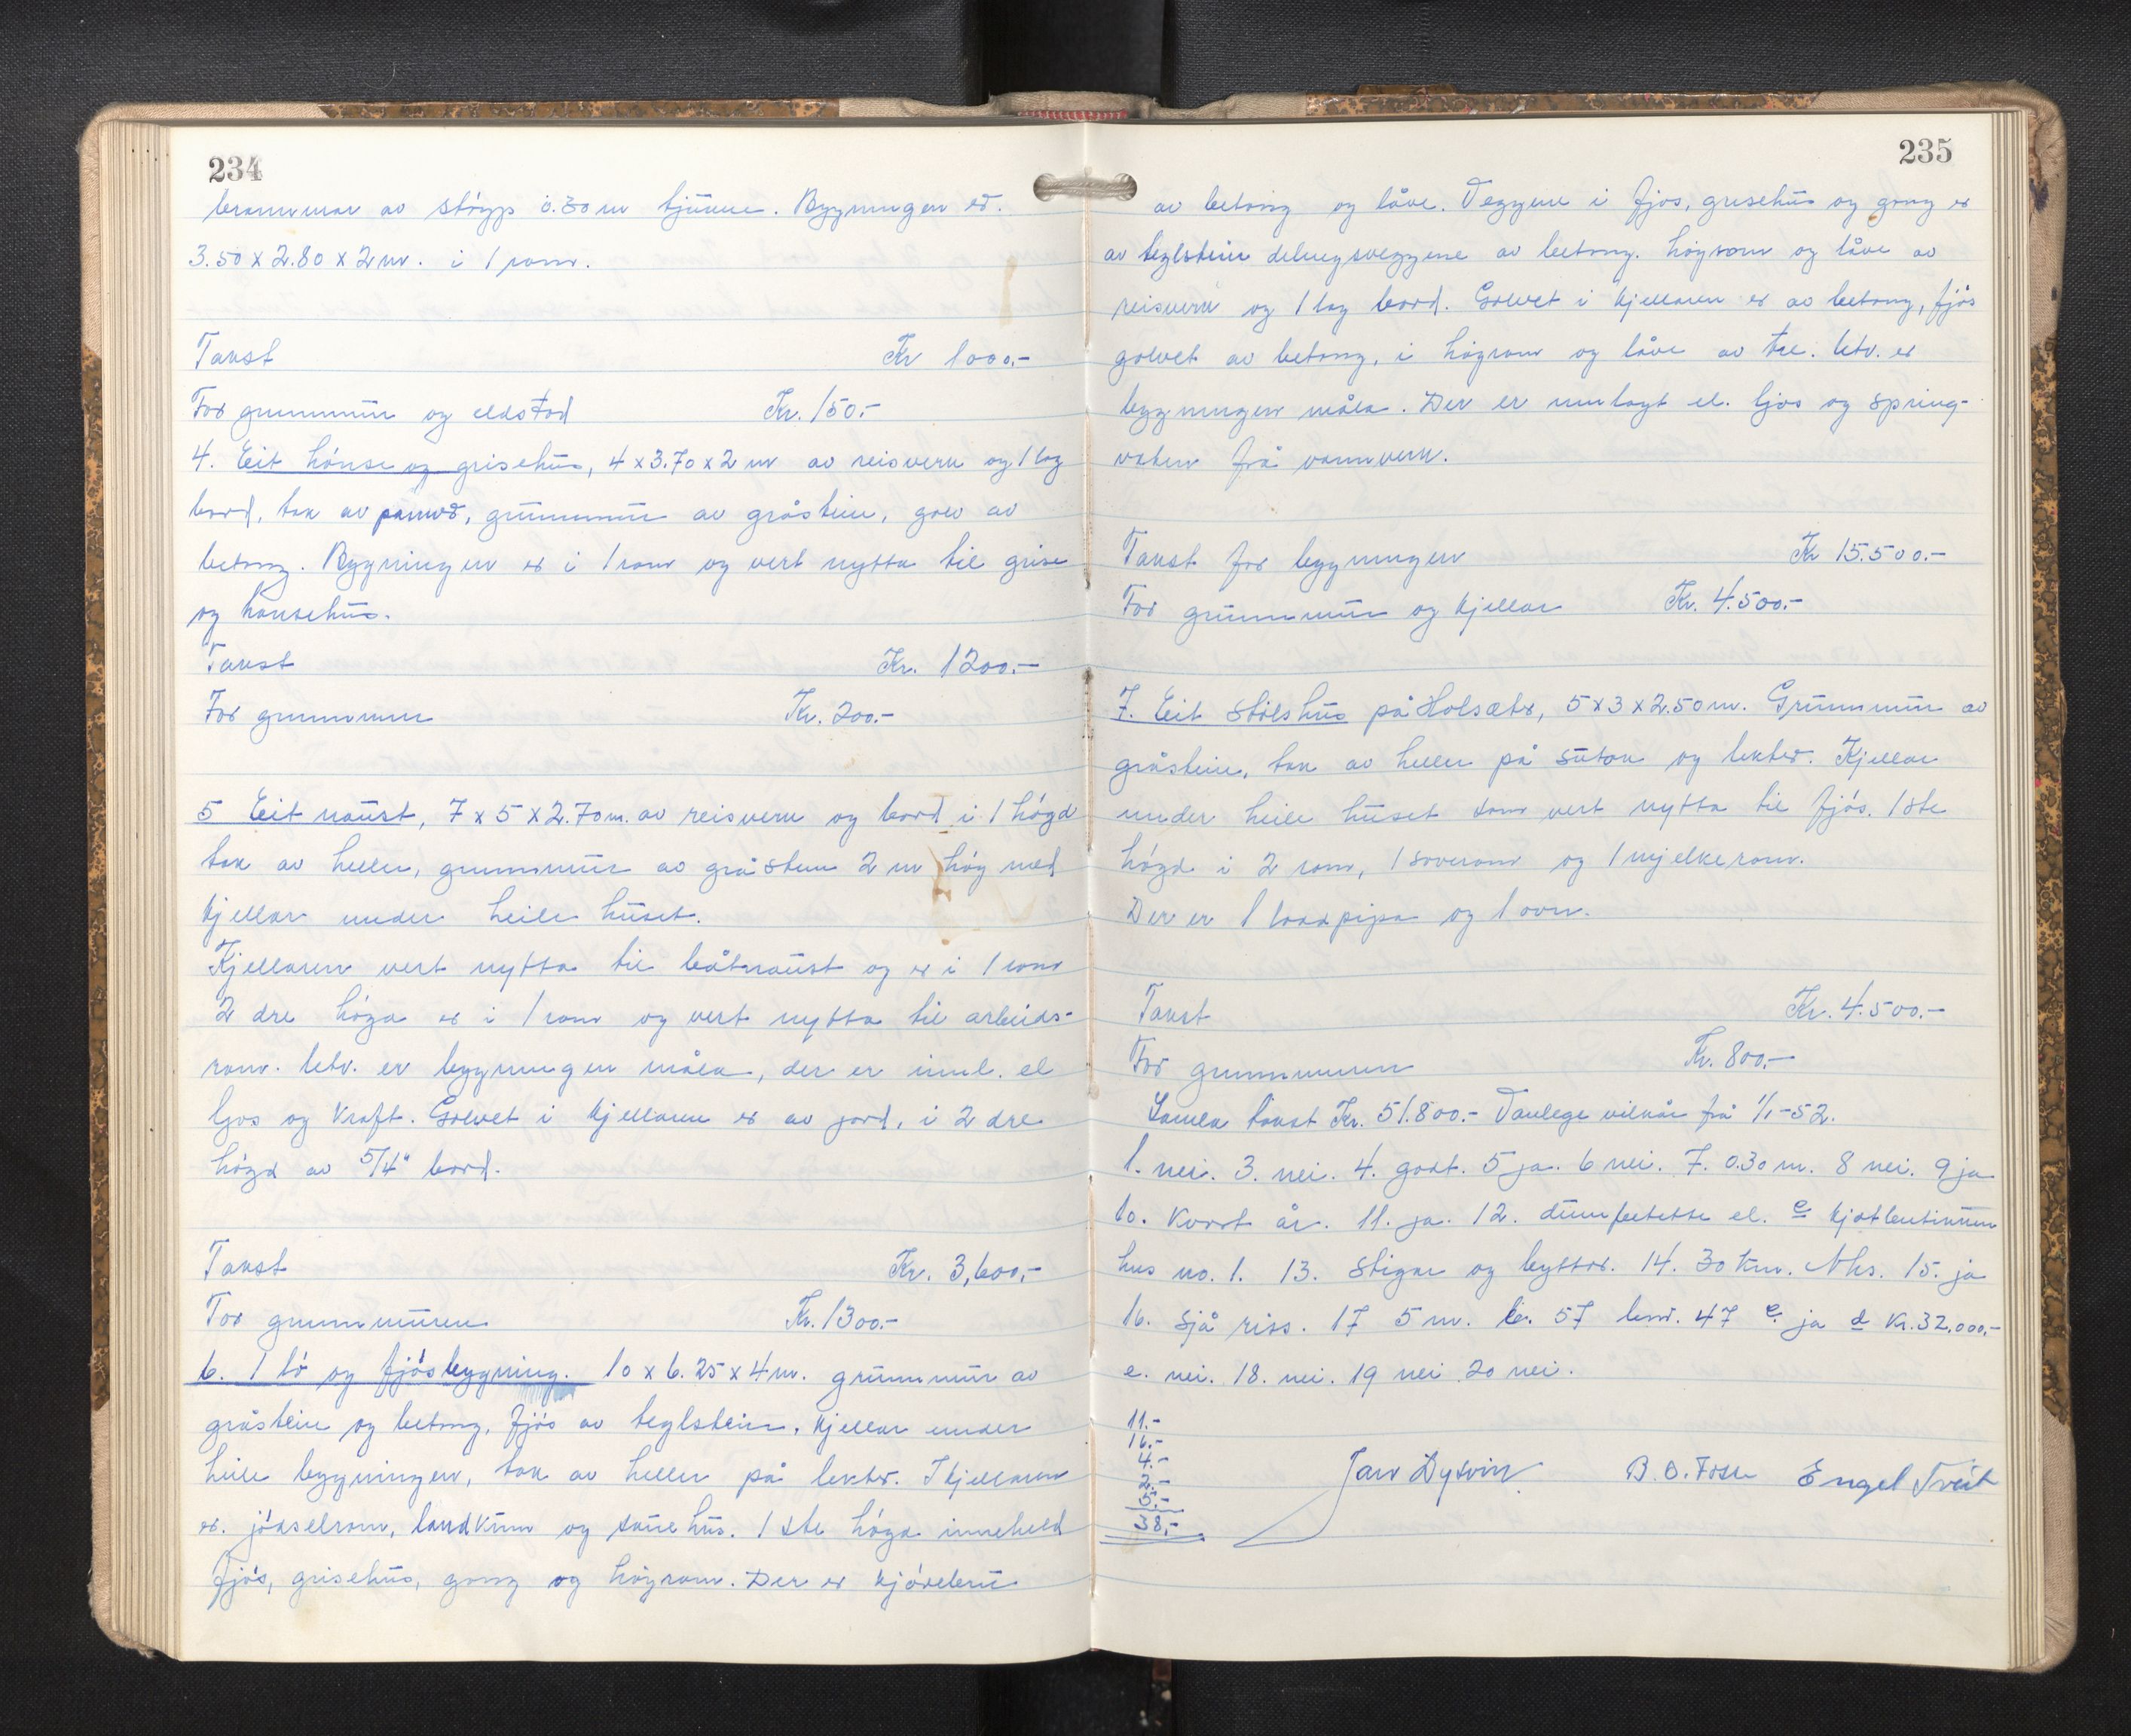 234
brannmur av støyp 0.30 m tjukne. Bygningen er.
3.50 x 2.80 x 2 m. i 1 rom.
Takst Kr 1000.-
For grunnmur og eldstad Kr. 150.-
4. Eit hönse og grisehus, 4 x 3.70 x 2 m av reisverk og 1 lag
bord, tak av panner, grunnmur av gråstein, golv av
betong. Bygningen er i 1 rom og vert nytta til grise
og hönsehus.
Takst Kr. 1200.-
For grunnmur Kr. 200.-
5 Eit naust, 7 x 5 x 2.70 m. av reisverk og bord i 1 högd
tak av heller, grunnmur av gråstein 2 m hög med
kjellar under heile huset.
Kjellaren vert nytta til båtnaust og er i 1 rom
2 dre högd er i 1 rom og vert nytta til arbeids-
rom. Utv. er bygningen måla, der er innl. el
ljos og kraft. Golvet i kjellaren er av jord, i 2 dre
högd av 5/4" bord.
Takst Kr. 3,600,-
For grunnmuren Kr. 1300.-
6. 1 lö og fjösbygning. 10 x 6.25 x 4 m. grunnmur av
gråstein og betong, fjös av teglstein, kjellar under
heile bygningen, tak av heller på lekter. I kjellaren
er. jödselrom, landkum og sauehus. 1 ste högd inneheld
fjös, grisehus, gong og höyrom. Der er kjörebru
235
av betong og låve. Veggene i fjös, grisehus og gong er
av teglstein delingsveggene av betong. höyrom og låve av
reisverk og 1 lag bord. Golvet i kjellaren er av betong, fjös
golvet av betong, i höyrom og låve av tre. Utv. er
bygningen måla. Der er innlagt el. ljos og spring-
vatn frå vannverk.
Takst for bygningen Kr 15.500.-
For grunnmur og kjellar Kr. 4.500.-
7. Eit stölshus på Holsætr, 5 x 3 x 2.50 m. Grunnmur av
gråstein, tak av heller på sutak og lekter. Kjellar
under heile huset som vert nytta til fjös. 1 ste
högd i 2 rom, 1 soverom og 1 mjelkerom.
Der er 1 pipa og 1 ovn.
Takst Kr. 4.500.-
For grunnmuren Kr. 800.-
Samla takst Kr. 51.800.- Vanlege vilkår frå 1/1-52.
1. nei. 3. nei. 4. godt. 5 ja. 6 nei. 7. 0.30 m. 8 nei. 9 ja
10. kvart år. 11. ja. 12. el. e
hus no. 1. 13. Stigar og byttor. 14. 30 km. Nhs. 15. ja
16. Sjå riss. 17 5 m. b. 57 bnr. 47 c. ja d Kr. 32,000,-
e. nei. 18. nei. 19 nei 20 nei.
11.-
16.-
4.-
2.-
5.-
38,-
B. O. Foss Engel Tveit